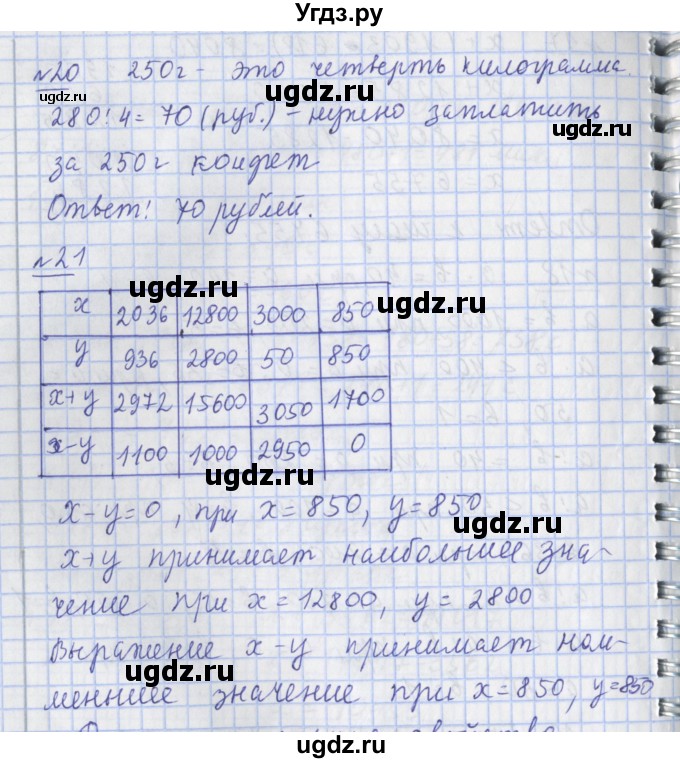 Угдз.ру
№20 250г - это четверть килограмма.
ugdz.ru
ugdz.ru
280:4 = 70 (руб.) - нужно заплатить
за 250г конфет
Ответ: 70 рублей.
ugdz.ru
№21
ugdz.ru ugdz.ru
x 2036 12800 3000 850
y 936 2800 50 850
x+y 2972 15600 3050 1700
x-y 1100 1000 2950 0
ugdz.ru
x-y=0, при x=850, y=850
ugdz.ru
x+y принимает наибольшее зна-
чение при x=12800, y=2800
Выражение x-y принимает наи-
ugdz.ru
меньшее значение при x=850, y=850
ugdz.ru